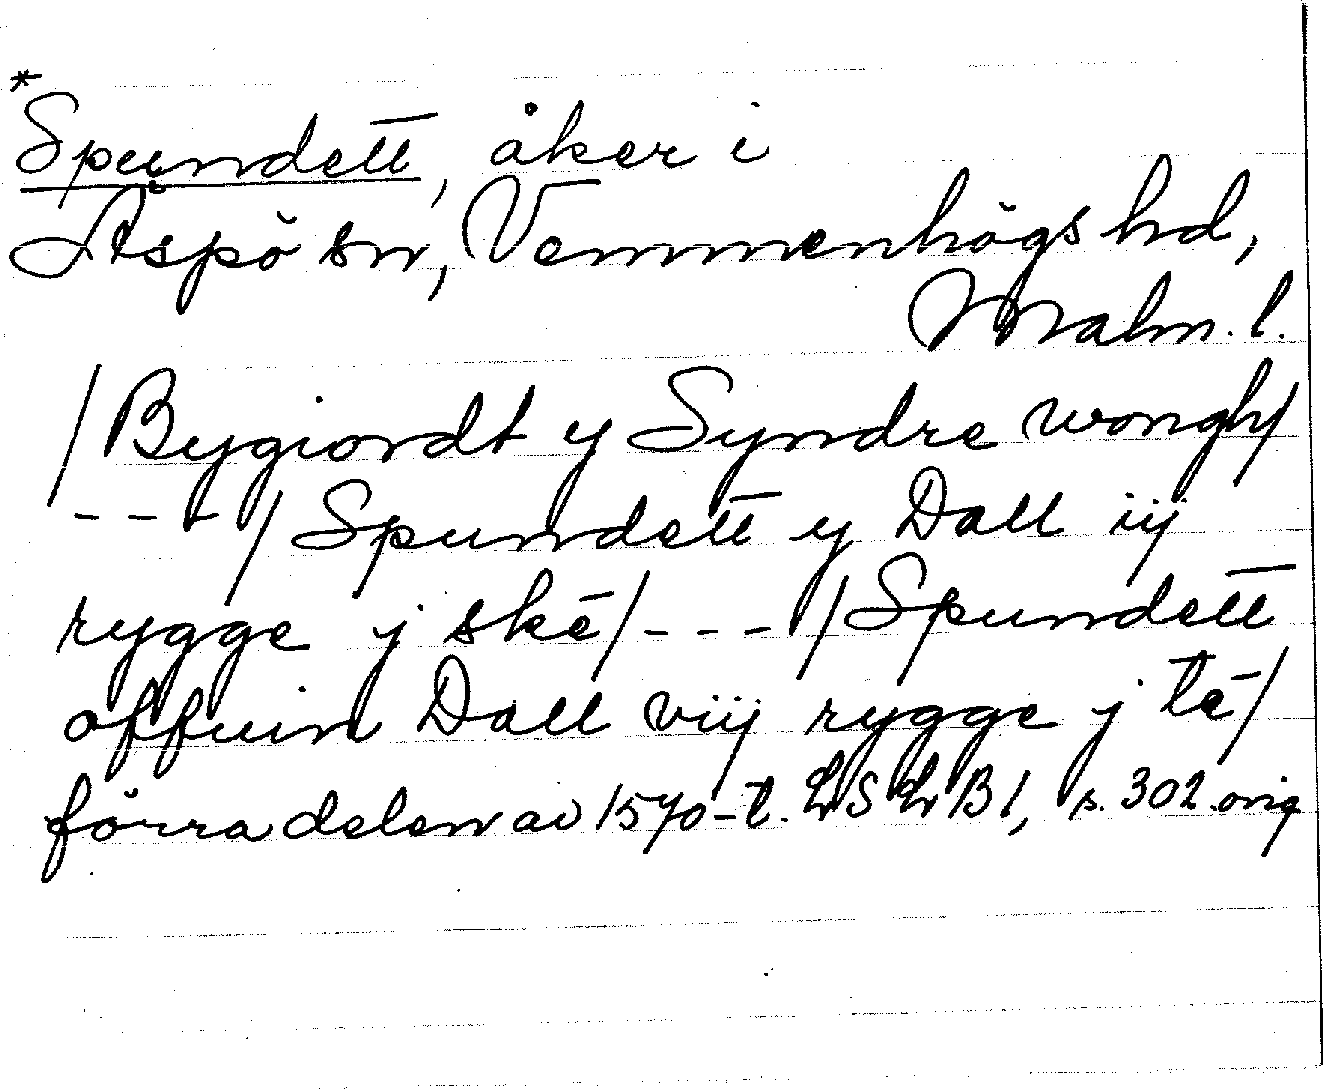 *
Spundett, åker i
Äspö sn, Vemmenhögs hd,
Malm. l.
/Bygiordt y Syndre wongh/
- - - / Spundett y Dall iij
rygge j ske/ - - - /Spundett
offuin Dall viij rygge j te/
förra delen av 1570-t. LSLB 1, s. 302. orig